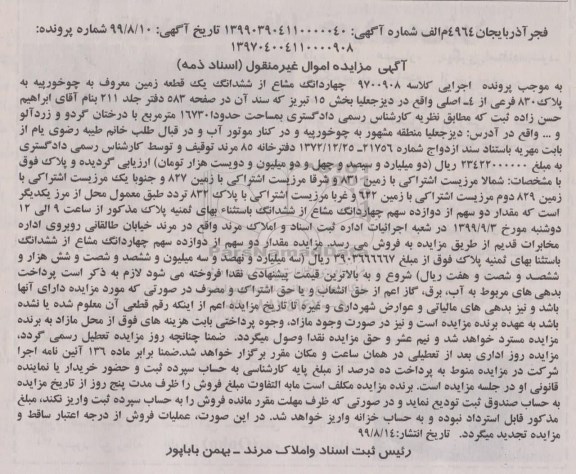 فجر آذربایجان ۴۹۶۴م‌الف شماره آگهی: ۱۳۹۹۰۳۹۰۴۱۱۰۰۰۰۰۴۰ تاریخ آگهی: ۹۹/۸/۱۰ شماره پرونده:
۱۳۹۷۰۴۰۰۴۱۱۰۰۰۰۹۰۸
آگهی مزایده اموال غیرمنقول (اسناد ذمه)
به موجب پرونده اجرایی کلاسه ۹۷۰۰۹۰۸ چهاردانگ مشاع از ششدانگ یک قطعه زمین معروف به چوخورپیه به
پلاک ۸۳۰ فرعی از ۴ـ اصلی واقع در دیزجعلیا بخش ۱۵ تبریز که سند آن در صفحه ۵۸۳ دفتر جلد ۲۱۱ بنام آقای ابراهیم
حسن زاده ثبت که مطابق نظریه کارشناس رسمی دادگستری بمساحت حدودا ۱۶۷۳۰ مترمربع با درختان گردو و زردآلو
و ... واقع در آدرس: دیزجعلیا منطقه مشهور به چوخورپیه و در کنار موتور آب و در قبال طلب خانم طیبه رضوی یام از
بابت مهریه باستناد سند ازدواج شماره ۲۱۷۵۶ـ ۱۳۷۲/۱۲/۲۵ دفترخانه ۸۵ مرند توقیف و توسط کارشناس رسمی دادگستری
به مبلغ ۲۳۴۲۲۰۰۰۰۰۰ ریال (دو میلیارد و سیصد و چهل و دو میلیون و دویست هزار تومان) ارزیابی گردیده و پلاک فوق
با مشخصات: شمالا مرزیست اشتراکی با زمین ۸۳۱ و شرقا مرزیست اشتراکی با زمین ۸۲۷ و جنوبا یک مرزیست اشتراکی با
زمین ۸۲۹ دوم مرزیست اشتراکی با زمین ۹۴۲ و غربا مرزیست اشتراکی با پلاک ۸۳۲ تردد طبق معمول محل از مرز یکدیگر
است که مقدار دو سهم از دوازده سهم چهاردانگ مشاع از ششدانگ باستثناء بهای ثمنیه پلاک مذکور از ساعت ۹ الی ۱۲
دوشنبه مورخ ۱۳۹۹/۹/۳ در شعبه اجرائیات اداره ثبت اسناد و املاک مرند واقع در مرند خیابان طالقانی روبروی اداره
مخابرات قدیم از طریق مزایده به فروش می رسد. مزایده مقدار دو سهم از دوازده سهم چهاردانگ مشاع از ششدانگ
باستثنا بهای ثمنیه پلاک فوق از مبلغ ۳۹۰۳۶۶۶۶۶۷ ریال (سه میلیارد و نهصد و سه میلیون و ششصد و شصت و شش هزار و
ششصد و شصت و هفت ریال) شروع و به بالاترین قیمت پیشنهادی نقدا فروخته می شود لازم به ذکر است پرداخت
بدهی های مربوط به آب، برق، گاز اعم از حق انشعاب و یا حق اشتراک و مصرف در صورتی که مورد مزایده دارای آنها
باشد و نیز بدهی های مالیاتی و عوارض شهرداری و غیره تا تاریخ مزایده اعم از اینکه رقم قطعی آن معلوم شده یا نشده
باشد به عهده برنده مزایده است و نیز در صورت وجود مازاد، وجوه پرداختی بابت هزینه های فوق از محل مازاد به برنده
مزایده مسترد خواهد شد و نیم عشر و حق مزایده نقدا وصول میگردد. ضمنا چنانچه روز مزایده تعطیل رسمی گردد،
مزایده روز اداری بعد از تعطیلی در همان ساعت و مکان مقرر برگزار خواهد شد.ضمنا برابر ماده ۱۳۶ آئین نامه اجرا
شرکت در مزایده منوط به پرداخت ده درصد از مبلغ پایه کارشناسی به حساب سپرده ثبت و حضور خریدار یا نماینده
قانونی او در جلسه مزایده است. برنده مزایده مکلف است مابه التفاوت مبلغ فروش را ظرف مدت پنج روز از تاریخ مزایده
به حساب صندوق ثبت تودیع نماید و در صورتی که ظرف مهلت مقرر مانده فروش را به حساب سپرده ثبت واریز نکند، مبلغ
مذکور قابل استرداد نبوده و به حساب خزانه واریز خواهد شد. در این صورت، عملیات فروش از درجه اعتبار ساقط و
مزایده تجدید میگردد. تاریخ انتشار:۹۹/۸/۱۴
رئیس ثبت اسناد واملاک مرند ـ بهمن باباپور